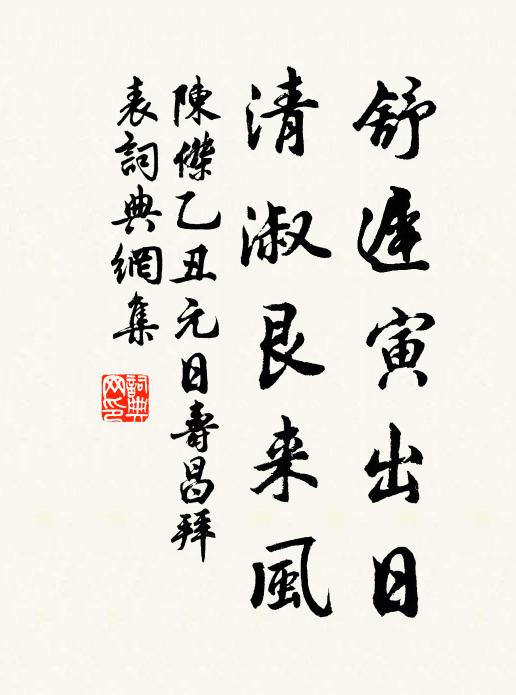 舒遲寅出日
清淑艮来風
陳傑乙丑元日壽昌拜
表詞典網集
詞典
网印